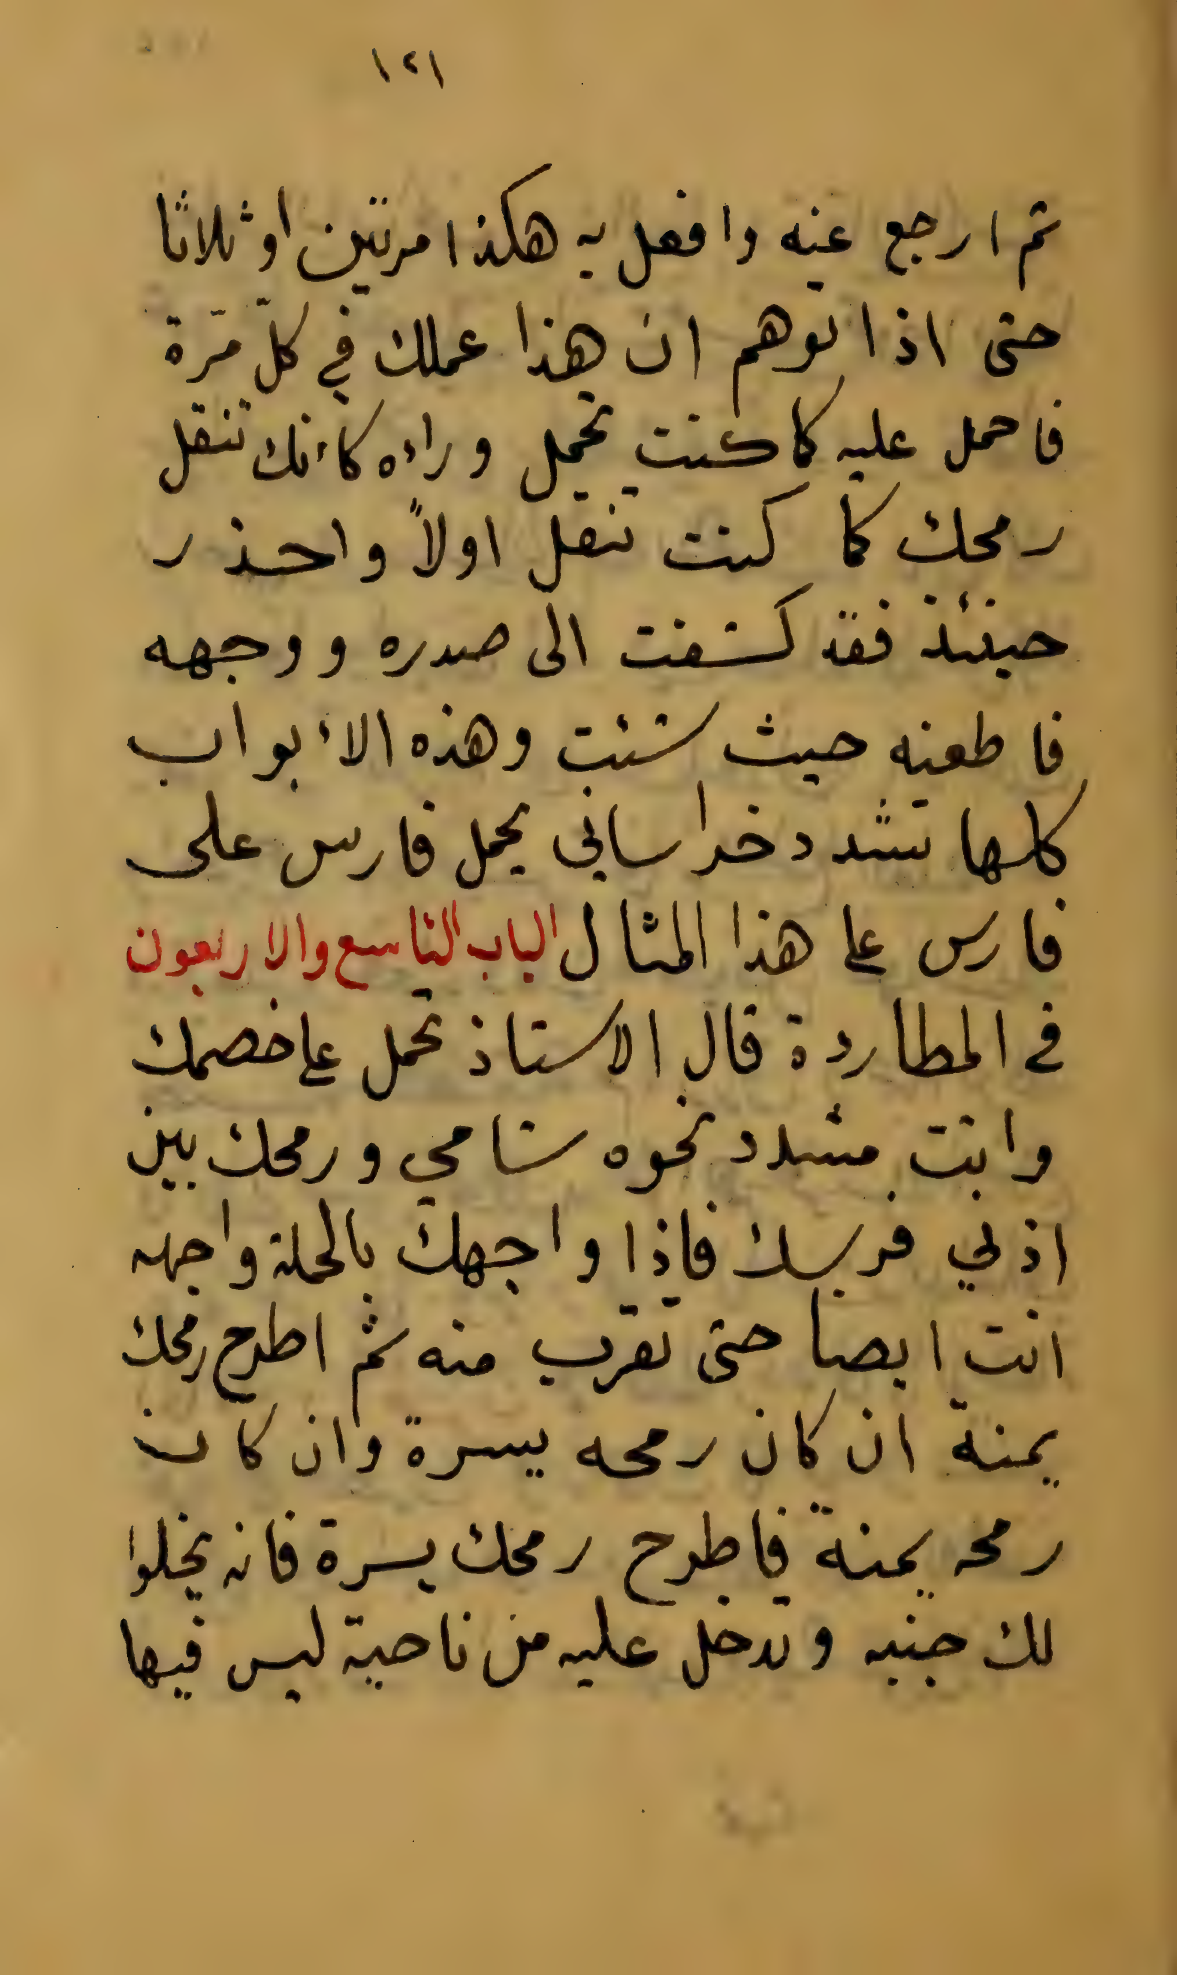 ١٢١
ثم ارجع عنه وافعل به هكذا مرتين او ثلاثا
حتى اذا توهم ان هذا عملك في كلّ مرّة
فاحمل عليه كما كنت تحمل وراءه كاءنك تنقل
رمحك كما كنت تنقل اولاً واحذر
حينئذ فقد كشفت الى صدره ووجهه
فاطعنه حيث شئت وهذه الاءبواب
كلها تشدد خراساني يحمل فارس على
فارس على هذا المثال الباب التاسع والاربعون
في المطاردة قال الاستاذ تحمل على خصمك
وانت مشدد نحوه شامي ورمحك بين
اذني فرسك فاذا واجهك بالحملة واجهه
انت ايضا حتى تقرب منه ثم اطرح رمحك
يمنة ان كان رمحه يسرة وان كان
رمحه يمنة فاطرح رمحك يسرة فانه يخلوا
لك جنبه وتدخل عليه من ناحية ليس فيها